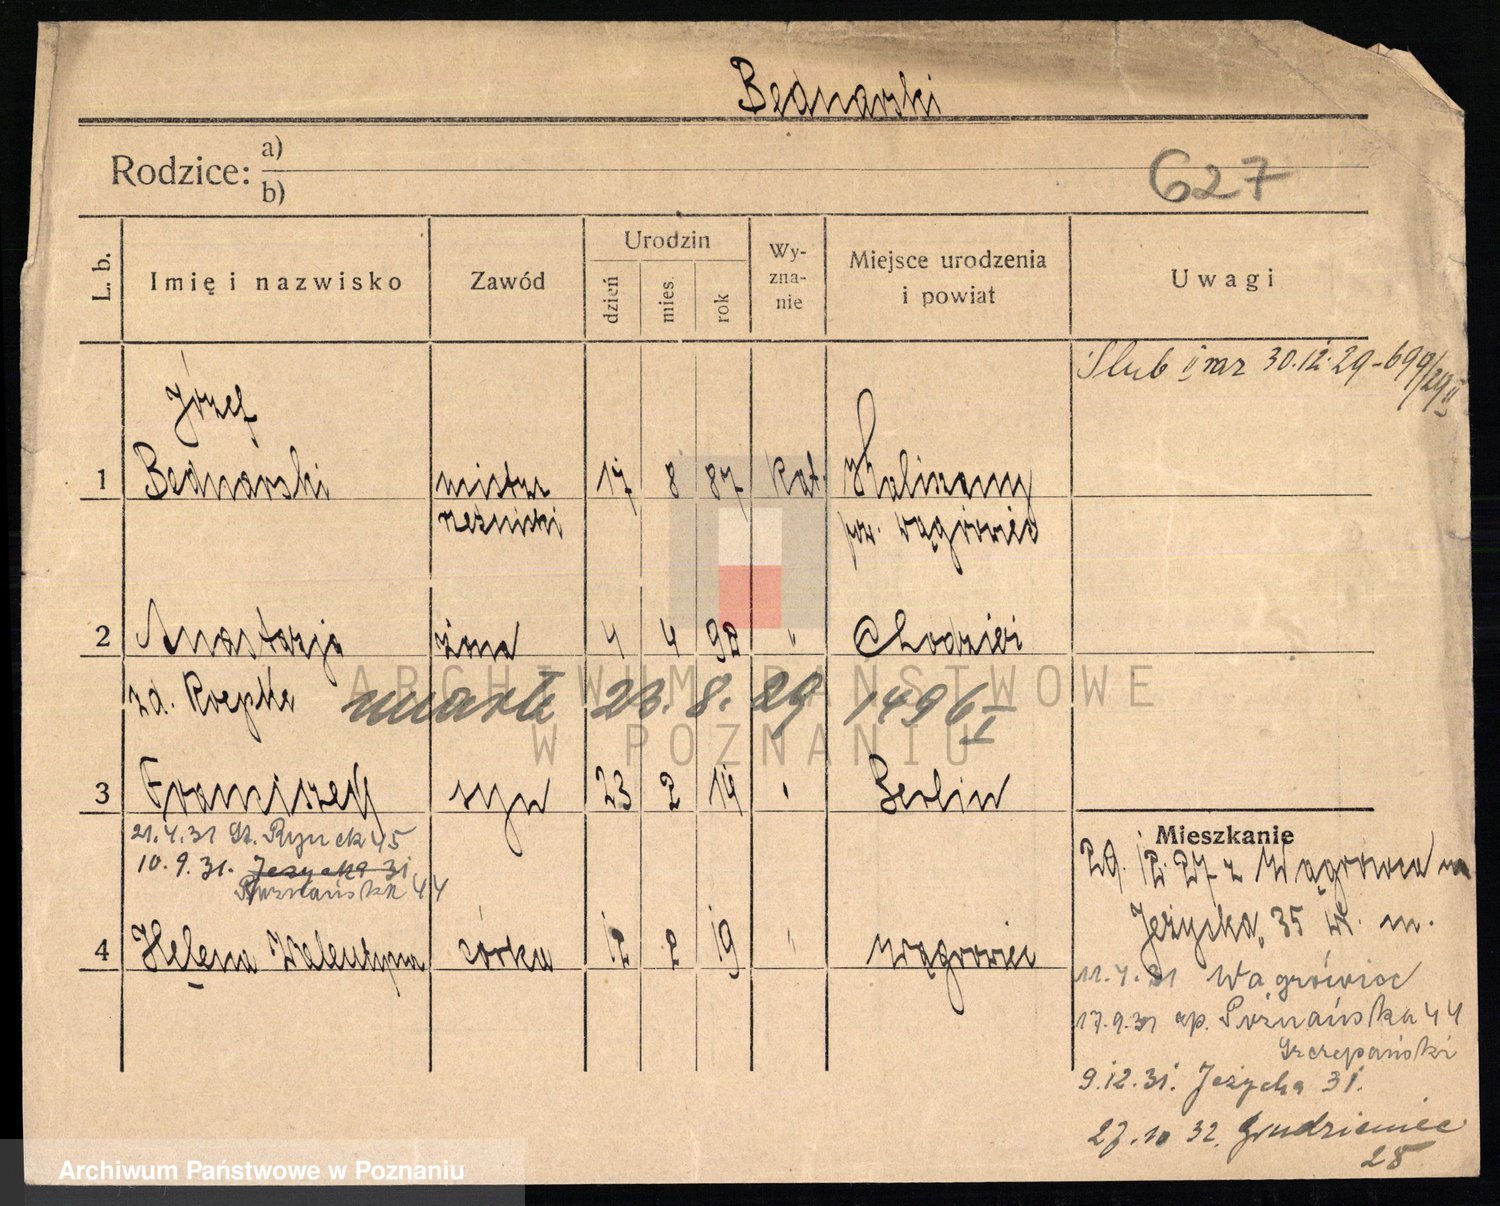 Bednarski
Rodzice: a)
b)
627
L. b.
Imię i nazwisko
Zawód
Urodzin
dzień
mies.
rok
Wy-
zna-
nie
Miejsce urodzenia
i powiat
Uwagi
Ślub II raz 30.12.29 - 699/29 II
Józef
1 Bednarski mistrz 17 8 87 kat.
rzeźnicki pow. Wągrowiec
2 Anastazja żona 4 4 92 " Chodzież
zd. Roepke umarła 23. 8. 29 1496 I
3 Franciszek syn 23 2 14 " Berlin
21.4.31 St. Rynek 45
10.9.31. Jeżycka 31
Poznańska 44
4 Helena Walentyna córka 12 2 19 " Wągrowiec
Mieszkanie
29. 12. 27 z Wągrowca
Jeżycka 35 w. m.
11.4.31 Wągrówiec
17.9.31 Poznańska 44
Szczepański
9.12.31. Jeżycka 31.
27.10 32. Grudzieniec
25
ARCHIWUM PAŃSTWOWE
W POZNANIU
Archiwum Państwowe w Poznaniu